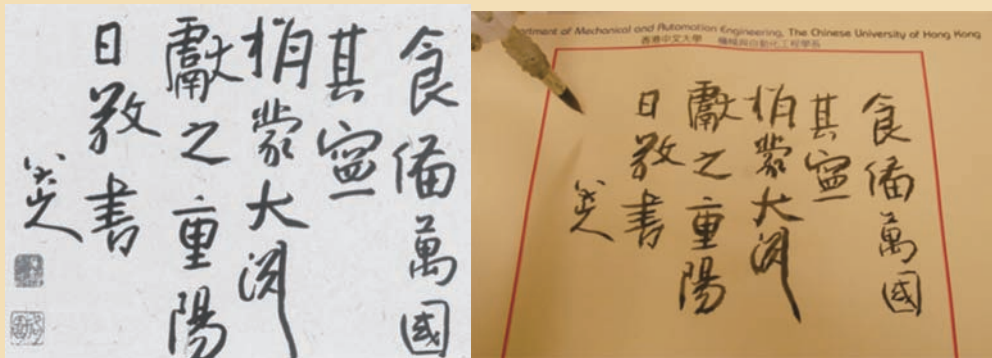 食備萬國
其寍
蒙大
獻之重陽
日敬書
八大山人
artment of Mechanical and Automation Engineering, The Chinese University of Hong Kong
香港中文大學 機械與自動化工程學
食備萬國
其寍
蒙大
獻之重陽
日敬書
八大山人